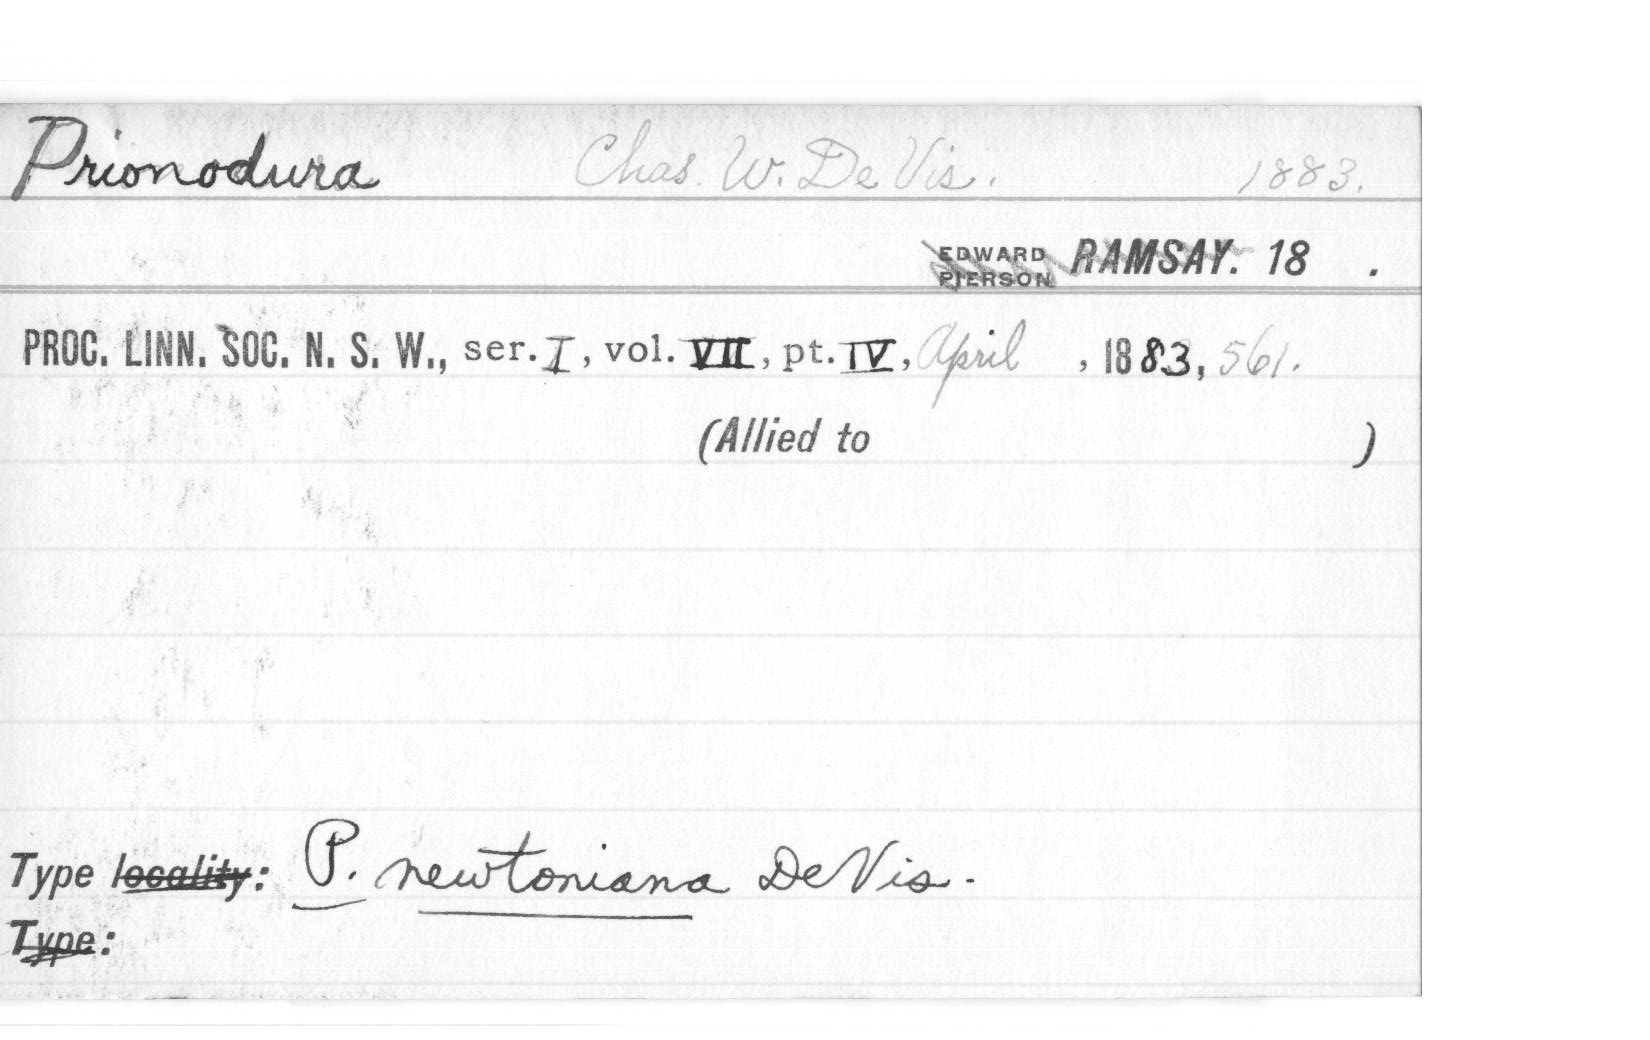 Prionodura Chas. W. De Vis. 1883.
EDWARD PIERSON RAMSAY. 18 .
PROC. LINN. SOC. N. S. W., ser. I, vol. VII, pt. IV, April , 1883, 561.
(Allied to )
Type locality: P. newtoniana De Vis.
Type: